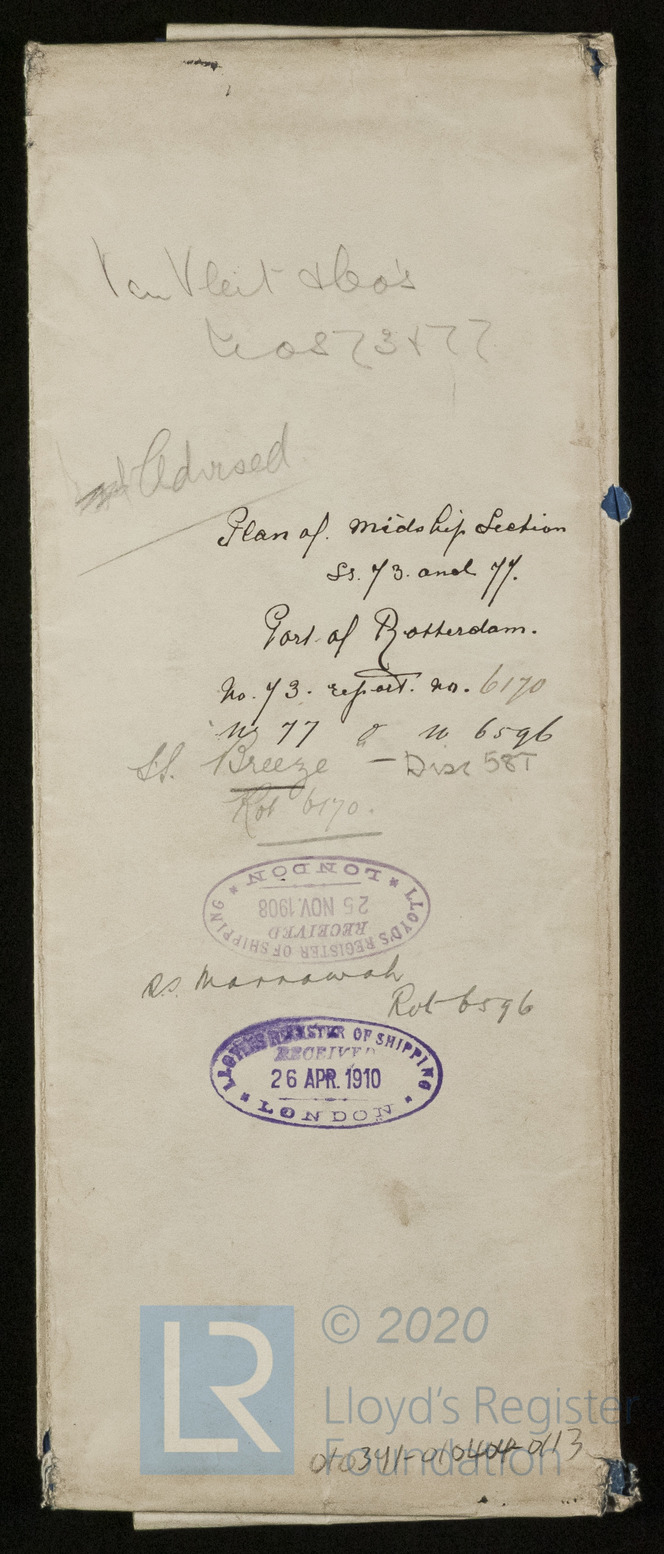 Van Vleit & Co's
Nos 73 & 77
Advised
Plan of Midship Section
Ss. 73 and 77.
Port of Rotterdam.
No. 73. report. no. 6170
No 77 " no 6596
SS. Breeze — Disc 58T
Rot 6170.
LLOYD'S REGISTER OF SHIPPING
RECEIVED
25 NOV. 1908
LONDON
SS. Marrawah
Rot 6596
LLOYD'S REGISTER OF SHIPPING
RECEIVED
26 APR. 1910
LONDON
LR
© 2020
Lloyd's Register
Foundation